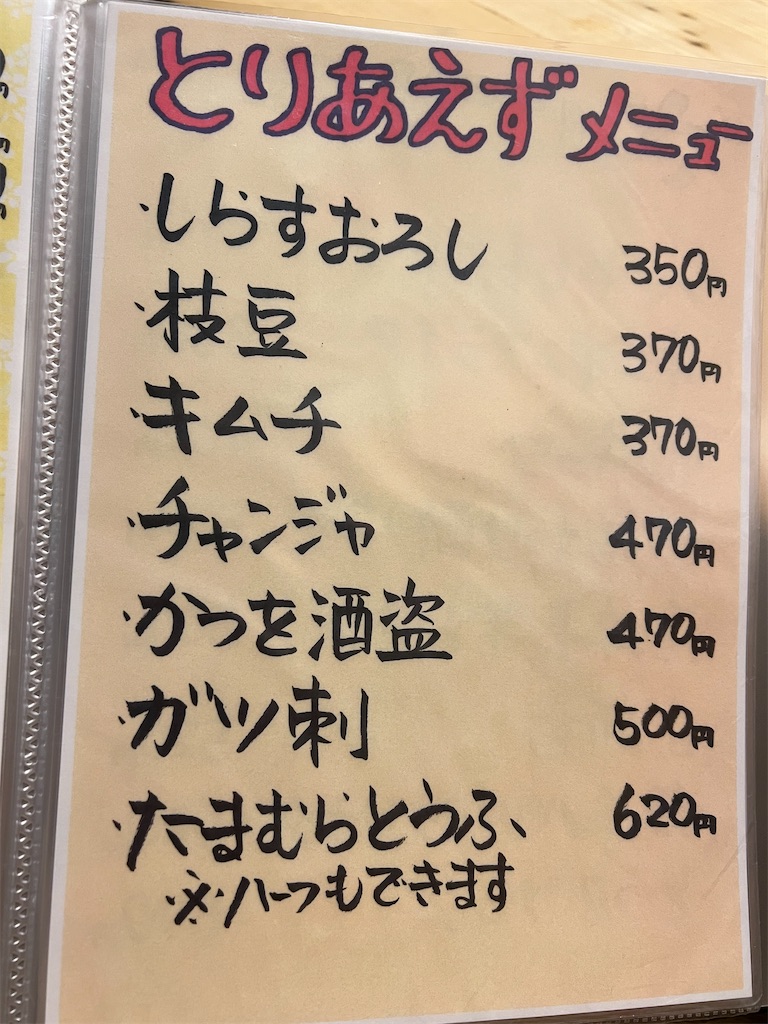 とりあえずメニュー
・しらすおろし 350円
・枝豆 370円
・キムチ 370円
・チャンジャ 470円
・かつを酒盗 470円
・ガツ刺 500円
・たまむらとうふ 620円
※ハーフもできます